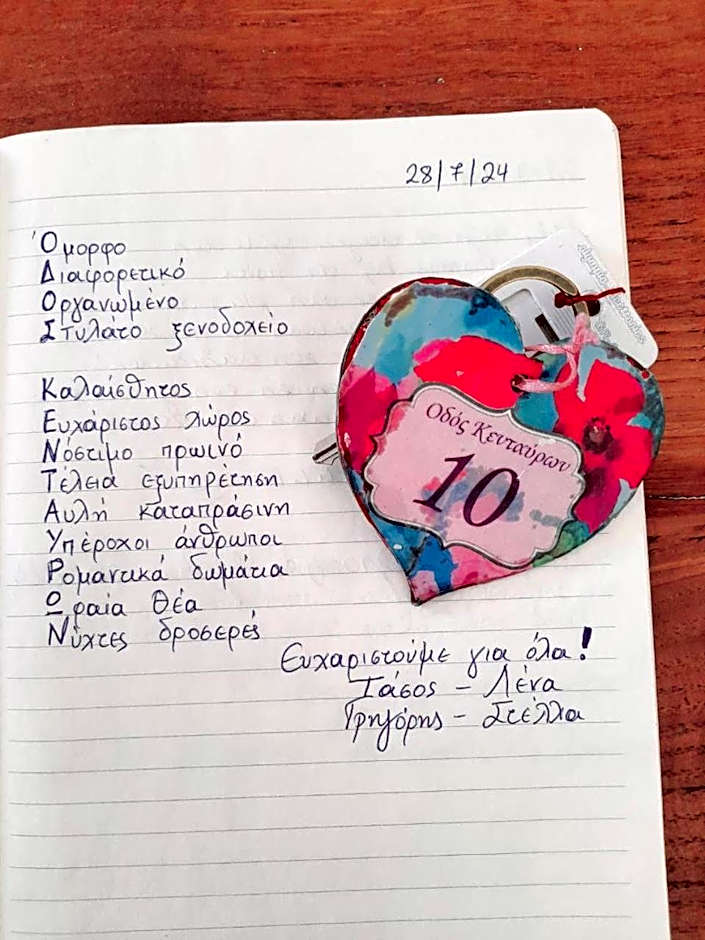 28/7/24
Όμορφο
Διαφορετικό
Οργανωμένο
Στυλάτο ξενοδοχείο
Καλαίσθητος
Ευχάριστος χώρος
Νόστιμο πρωινό
Τέλεια εξυπηρέτηση
Αυλή καταπράσινη
Υπέροχοι άνθρωποι
Ρομαντικά δωμάτια
Ωραία θέα
Νύχτες δροσερές
Οδός Κενταύρων
10
Ευχαριστούμε για όλα!
Τάσος - Λένα
Γρηγόρης - Στέλλα